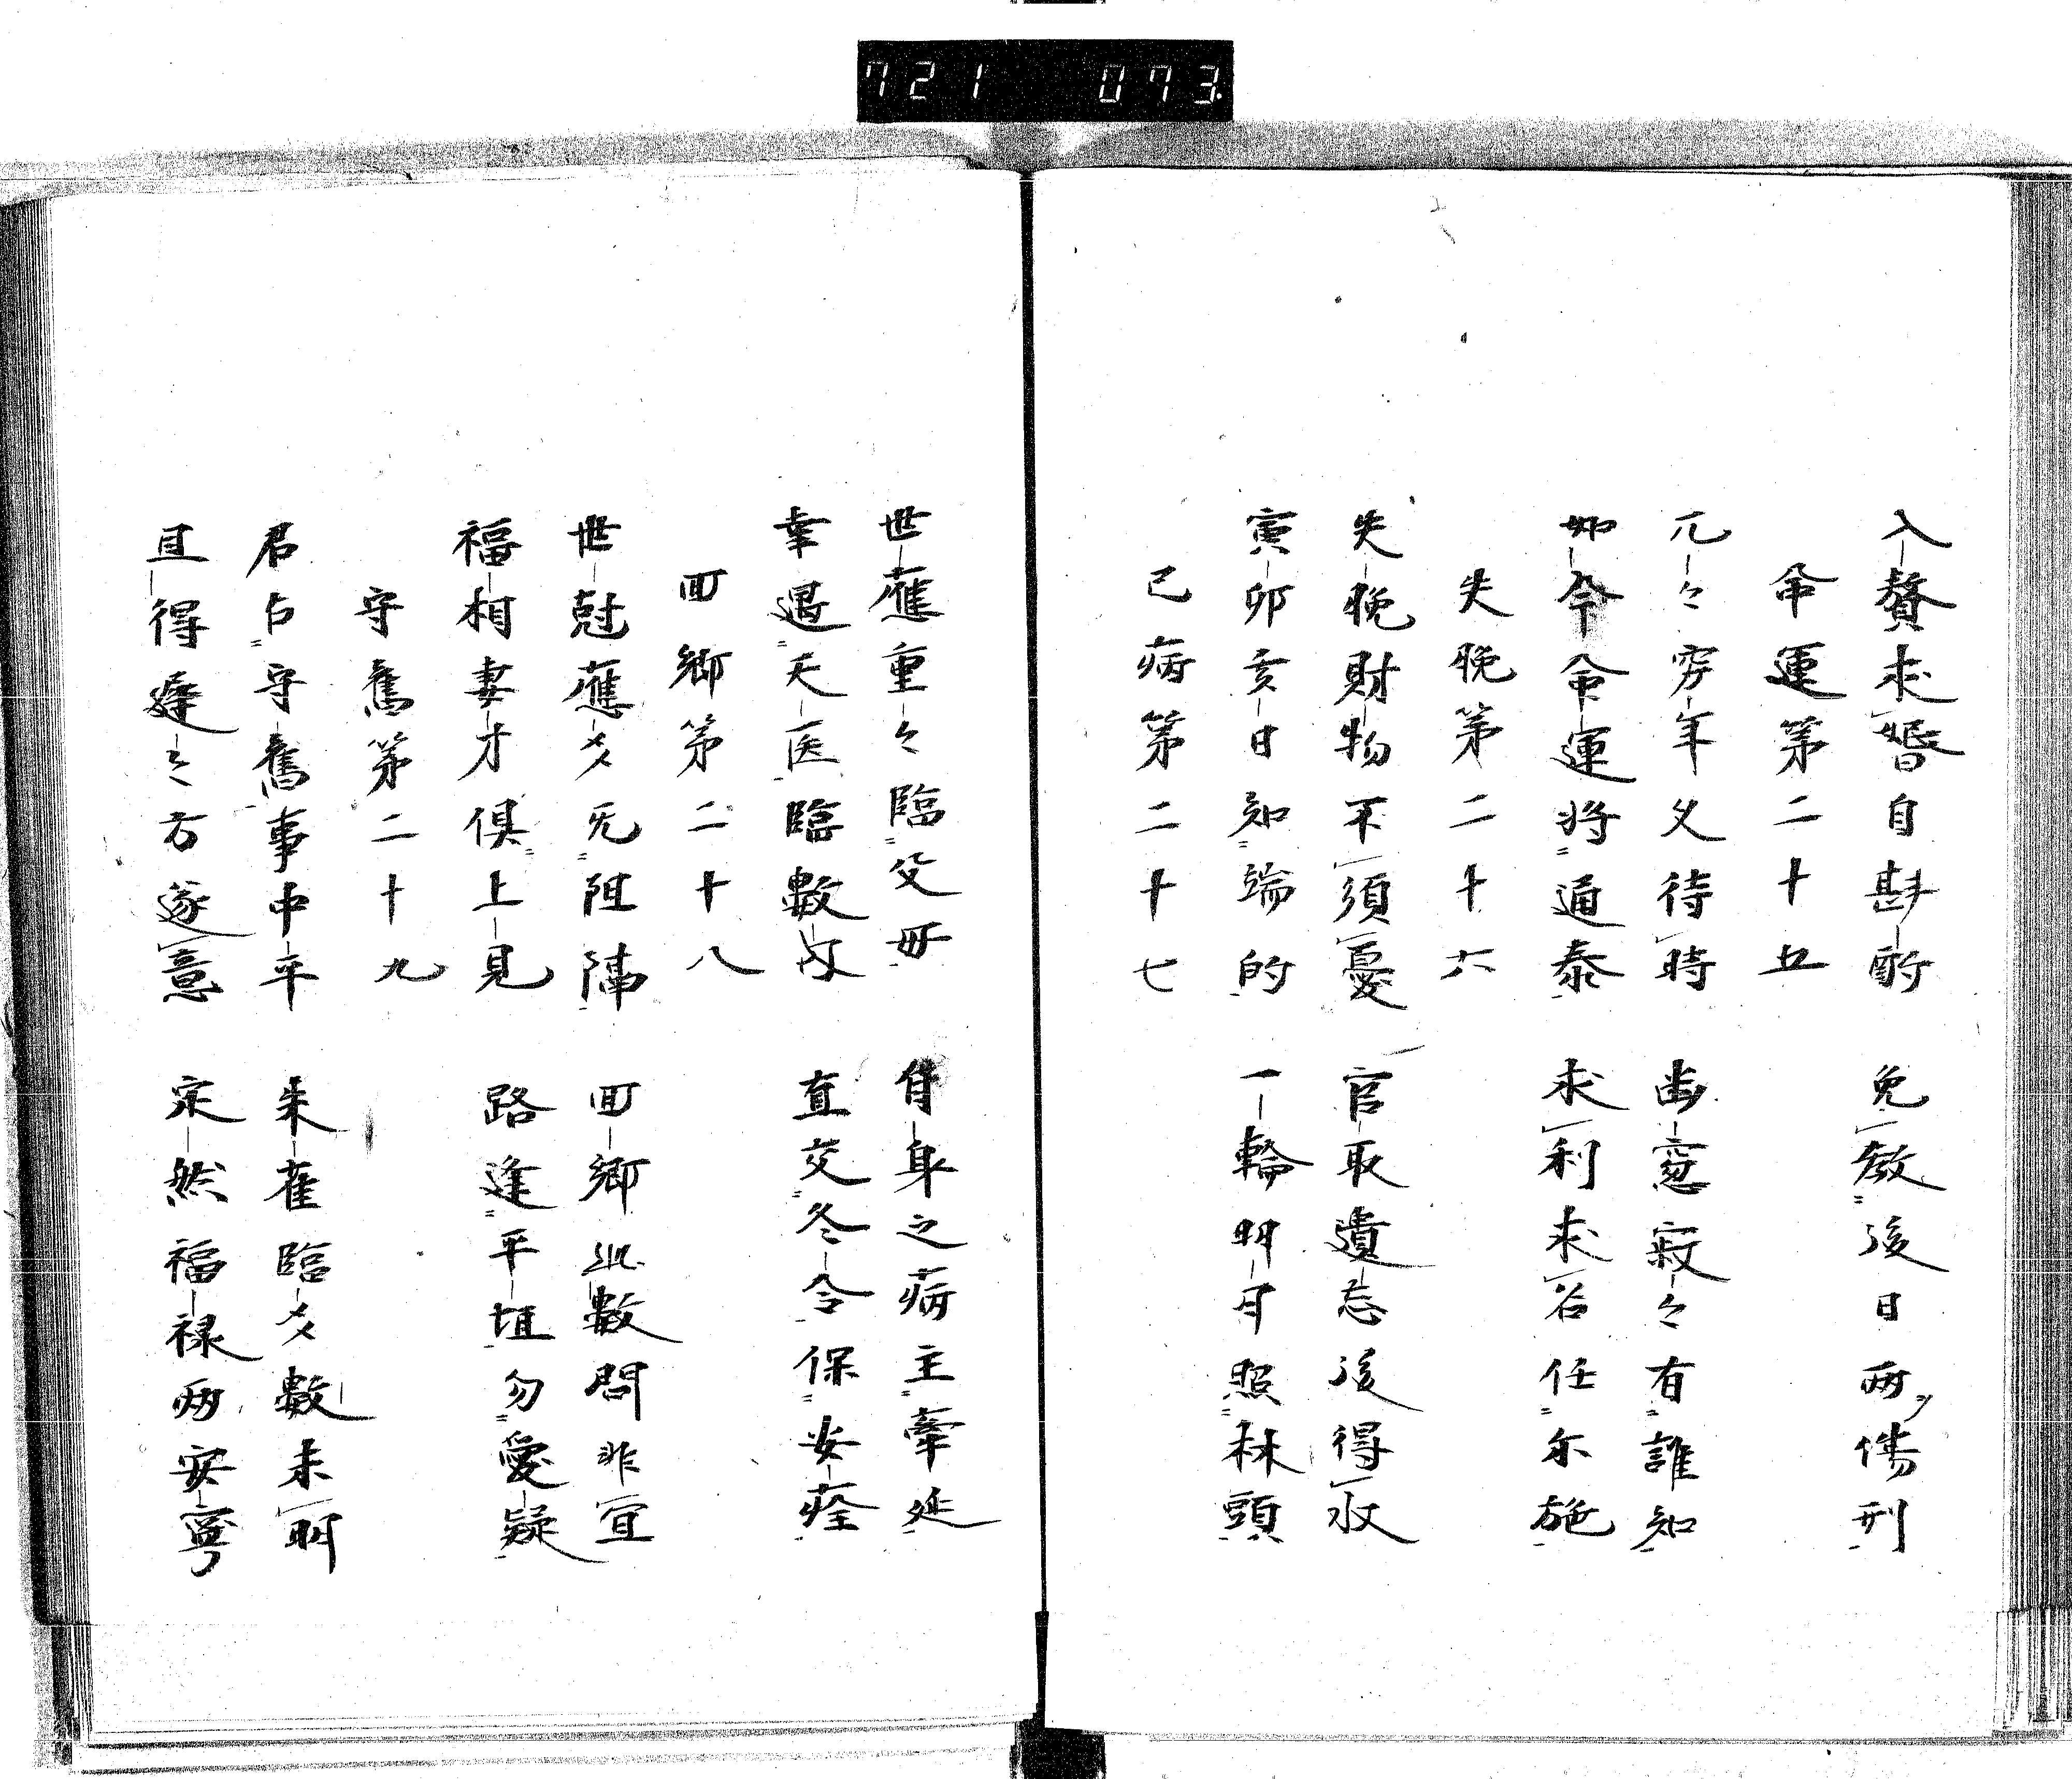 721 073.
入贅求婚自斟酌 免教後日兩傷刑
命運第二十五
兀々窮年父待時 幽窓寂々有誰知
如今命運将通泰 求利求名任尓施
失脱第二十六
失脱財物不須憂 官取遺忘後得收
寅卯亥日知端的 一輪明月照林頭
己病第二十七
世應重々臨父母 自身之病主牽延
幸遇天医臨數位 直交冬令保安痊
回鄉第二十八
世尅應爻无阻隔 回鄉此數問非宜
福相妻才俱上見 路逢平坦勿憂疑
守舊第二十九
君占守舊事中平 朱雀臨爻數未明
且得遲々方遂意 定然福禄兩安寧